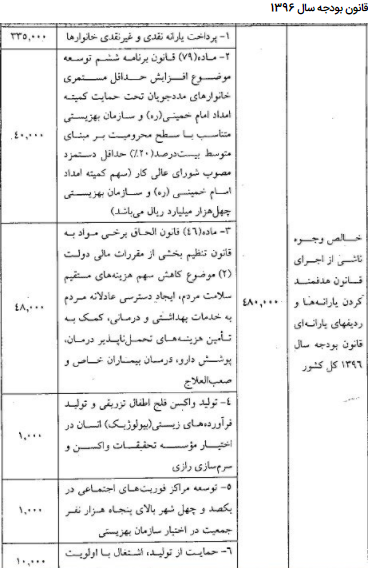 قانون بودجه سال ۱۳۹۶
خالص وجوه
ناشی از اجرای
قانون هدفمند
کردن یارانه‌ها و
ردیفهای یارانه‌ای
قانون بودجه سال
۱۳۹۶ کل کشور
۴۸۰,۰۰۰
۱- پرداخت یارانه نقدی و غیرنقدی خانوارها
۳۳۵,۰۰۰
۲- ماده(۷۹) قانون برنامه ششم توسعه
موضوع افزایش حداقل مستمری
خانوارهای مددجویان تحت حمایت کمیته
امداد امام خمینی(ره) و سازمان بهزیستی
متناسب با سطح محرومیت بر مبنای
متوسط بیست‌درصد(۲۰٪) حداقل دستمزد
مصوب شورای عالی کار (سهم کمیته امداد
امام خمینی (ره) و سازمان بهزیستی
چهل‌هزار میلیارد ریال می‌باشد)
۴۰,۰۰۰
۳- ماده(۴۶) قانون الحاق برخی مواد به
قانون تنظیم بخشی از مقررات مالی دولت
(۲) موضوع کاهش سهم هزینه‌های مستقیم
سلامت مردم، ایجاد دسترسی عادلانه مردم
به خدمات بهداشتی و درمانی، کمک به
تأمین هزینه‌های تحمل‌ناپذیر درمان،
پوشش دارو، درمان بیماران خاص و
صعب‌العلاج
۴۸,۰۰۰
۴- تولید واکسن فلج اطفال تزریقی و تولید
فرآورده‌های زیستی(بیولوژیک) انسان در
اختیار مؤسسه تحقیقات واکسن و
سرم‌سازی رازی
۱,۰۰۰
۵- توسعه مراکز فوریت‌های اجتماعی در
یکصد و چهل شهر بالای پنجاه هزار نفر
جمعیت در اختیار سازمان بهزیستی
۱,۰۰۰
۶- حمایت از تولید، اشتغال با اولویت
۱۰,۰۰۰